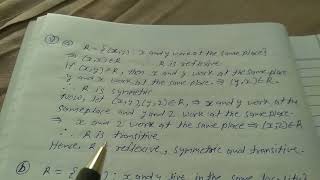 (v) (a) R = {(x,y): x and y work at the same place}
⇒ (x,x) ∈ R ∴ R is reflexive
If (x,y) ∈ R, then x and y work at the same place
y and x work at the same place ⇒ (y,x) ∈ R
∴ R is symmetric
Now, let (x,y),(y,z) ∈ R, ⇒ x and y work at the
same place and y and z work at the same place.
⇒ x and z work at the same place ⇒ (x,z) ∈ R
∴ R is transitive
Hence, R reflexive, symmetric and transitive.
(b) R = : x and y live in the same locality}